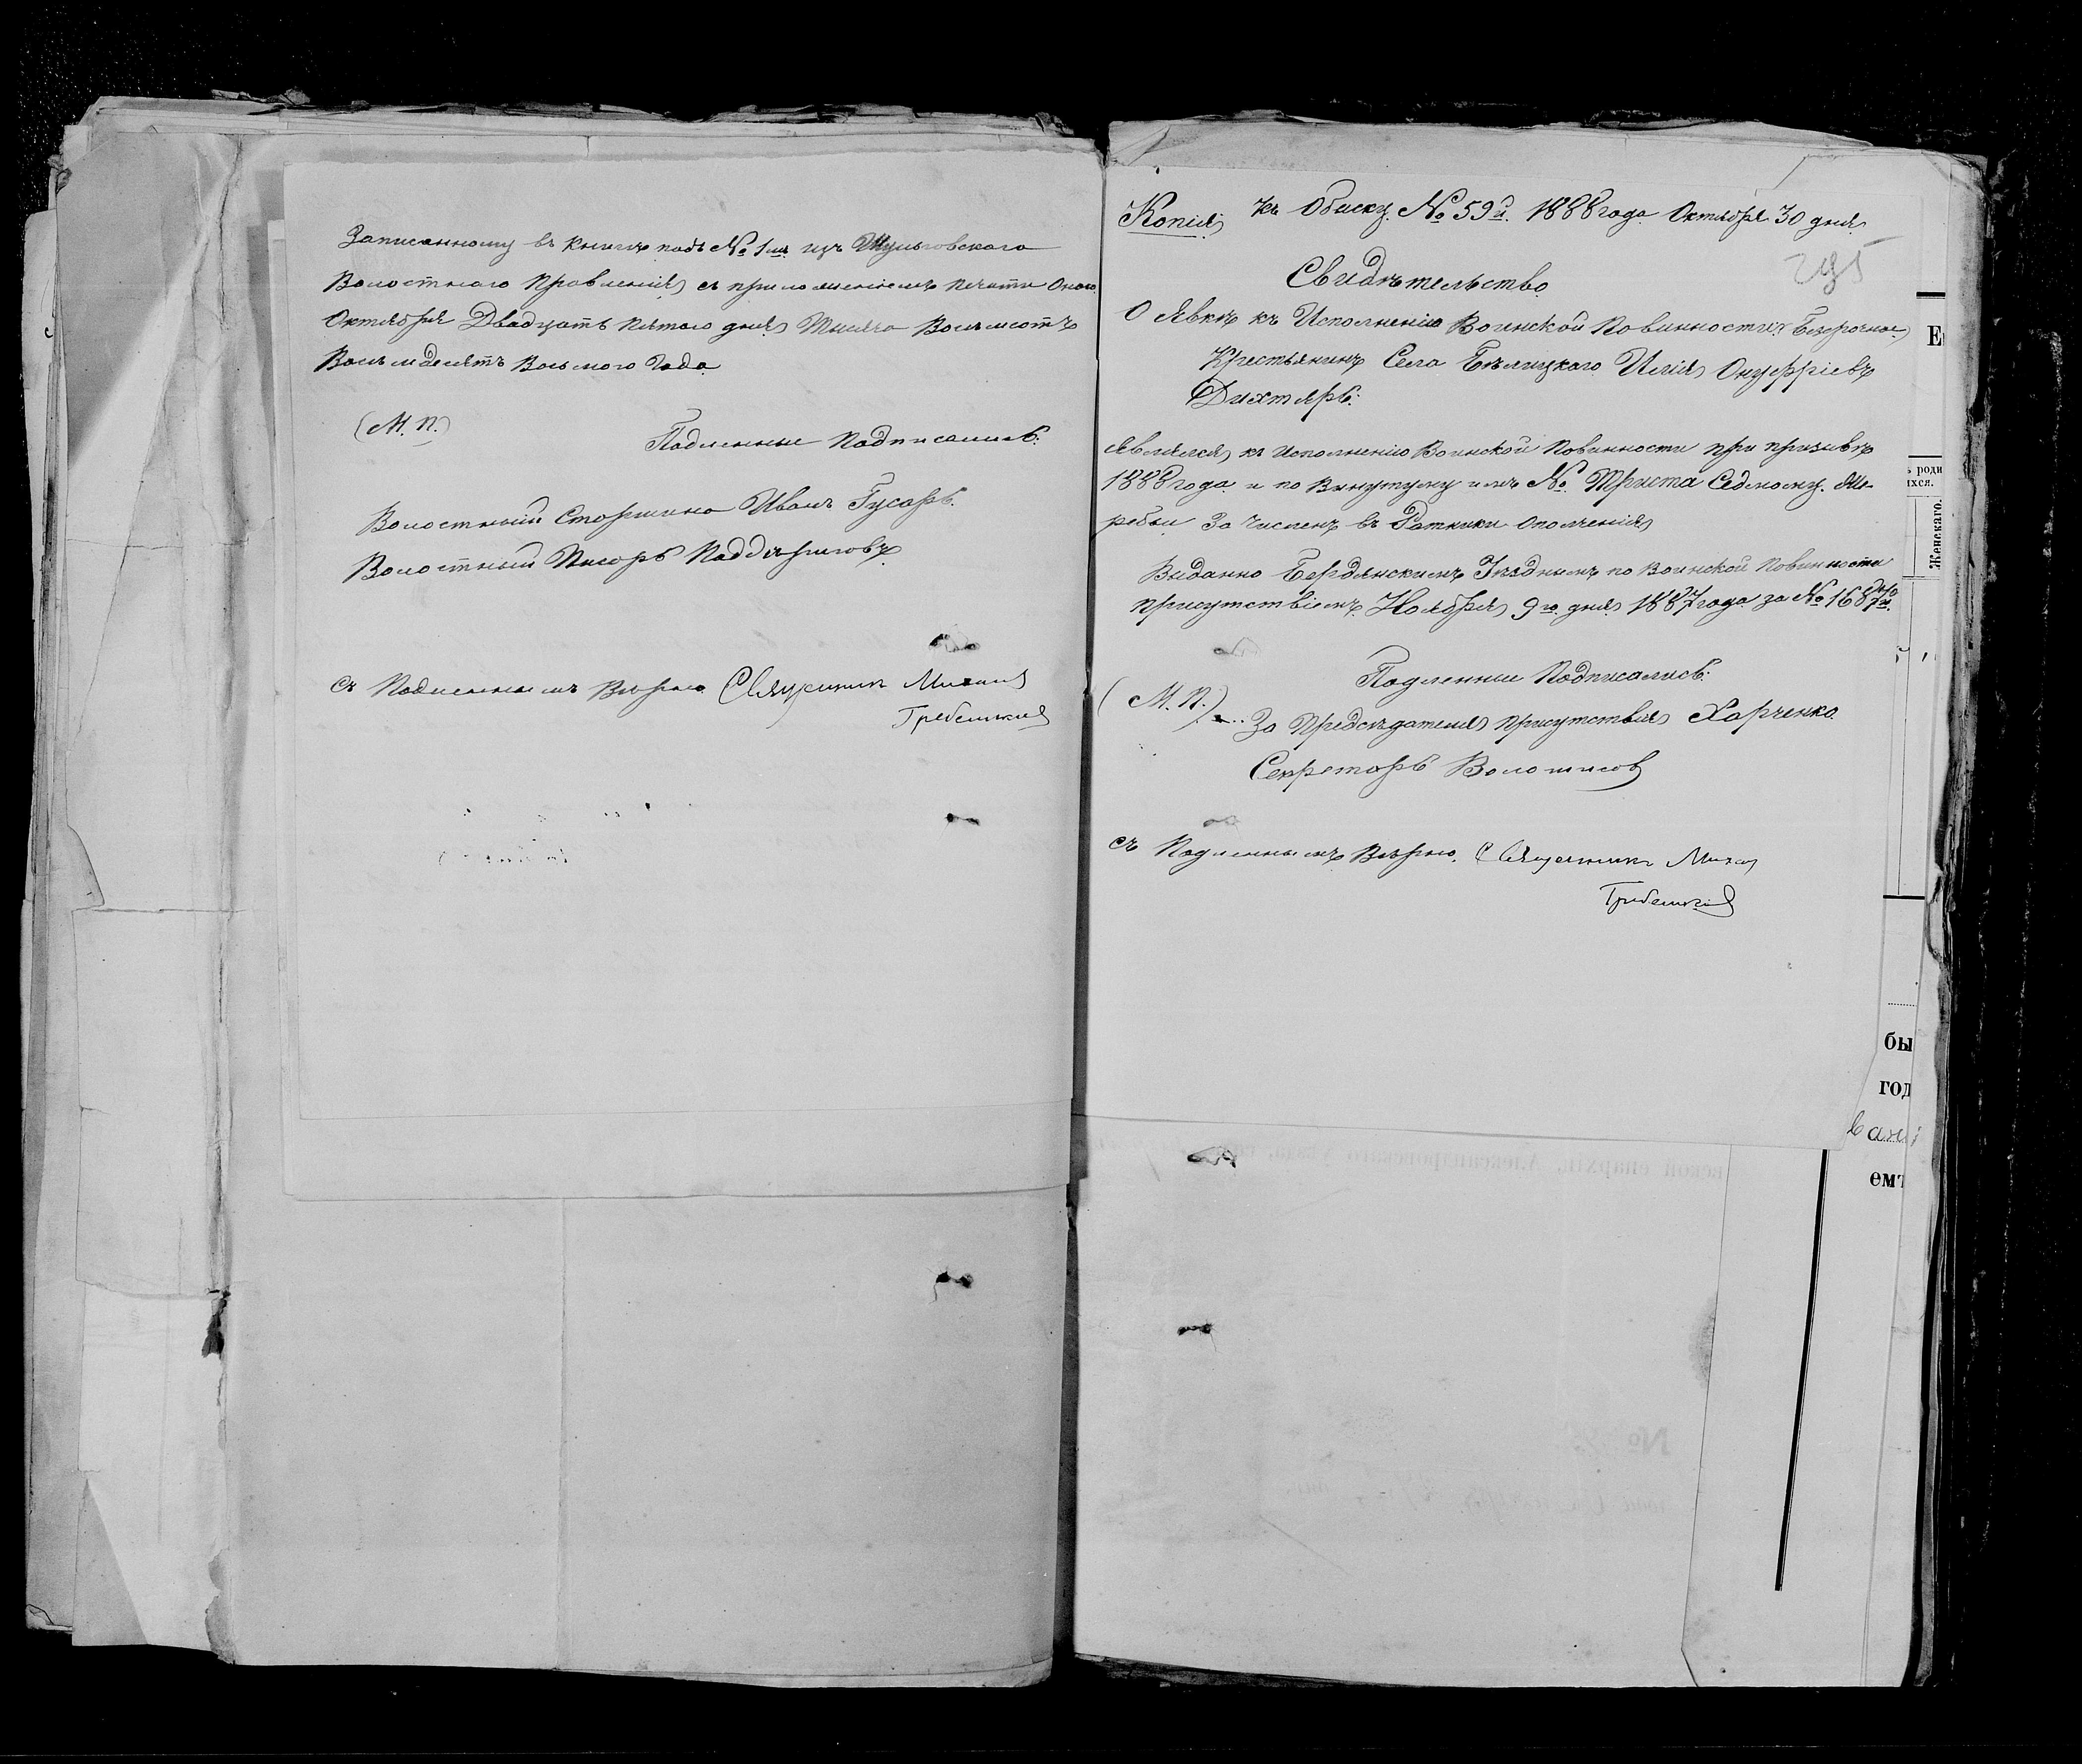 Записанному въ книгѣ подъ № 1мъ изъ Шульговскаго
Волостнаго Правленія съ приложеніемъ печати Онаго.
Октября Двадцать пятаго дня Тысяча Восемьсотъ
Восемьдесятъ Восьмого Года
(М. П.)
Подленные Подписались:
Волостный Старшина Иванъ Гусарь.
Волостный Писарь
Съ Подленнымъ Вѣрно. Священникъ Михаилъ
Гребенскій
Копія къ Обыску № 59й 1888 года Октября 30 дня
Свидѣтельство
О Явкѣ къ Исполненію Воинской Повинности Безсрочное
Крестьянинъ Села Бѣлицкаго Илія Онуфріевъ
Дихтярь:
Являлся къ Исполненію Воинской Повинности при призывѣ
1888 года и по Вынутуму имъ № Триста Седмому Же-
ребью За численъ въ Ратники ополченія
Выданно Бердянскимъ Уѣзднымъ по Воинской Повинности
присутствіемъ Ноября 9го дня 1887 года за № 1687м.
Подленные Подписались:
(М. П.)
За Предсѣдателя присутствія Харченко
Секретарь Волошинов
Съ Подленнымъ Вѣрно. Священникъ Михаилъ
Гребенскій
Е
ъ роди
ихся.
Женскаго.
бы
год
емъ